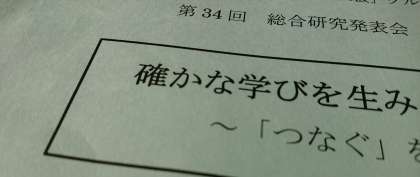 第34回 総合研究発表会
確かな学びを生み
～「つなぐ」